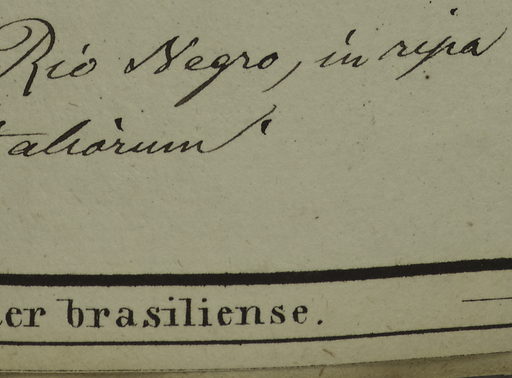 Rio Negro, in ripa
aliorum
er brasiliense.